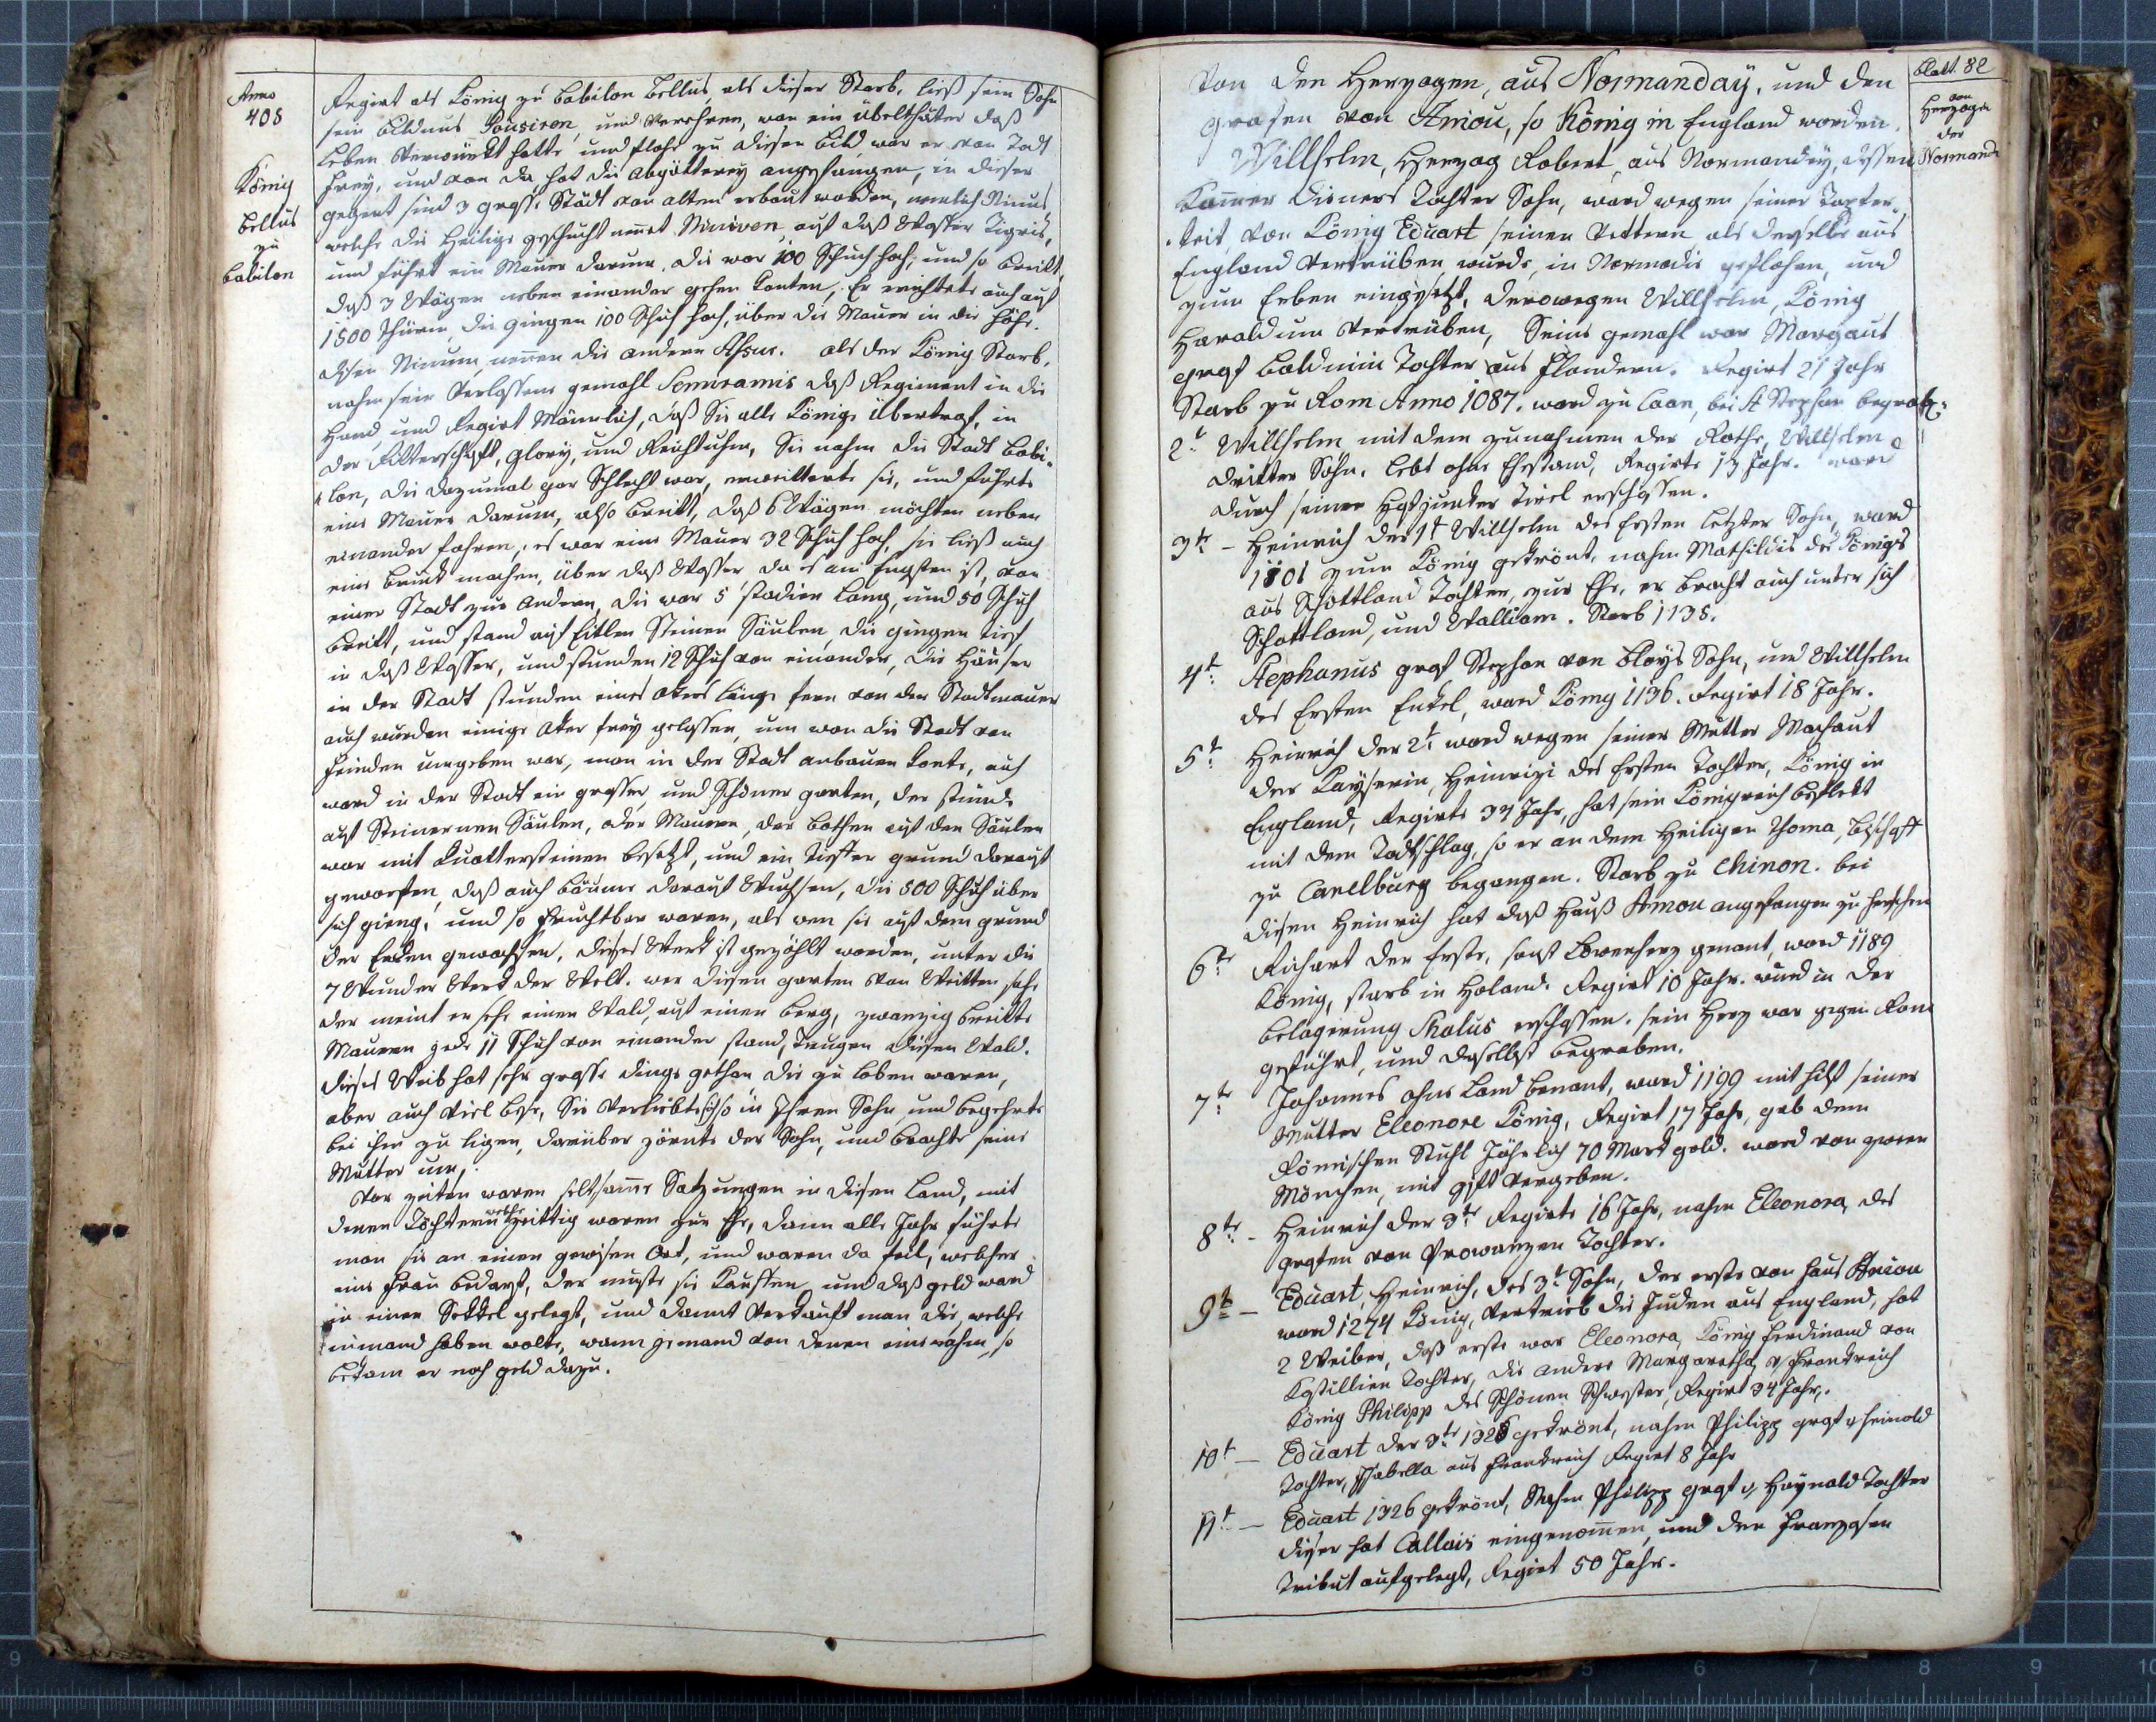 Anno
408
König
Bellus
zu
Babilon
Regirt als König zu Babilon Bellus, als dieser Starb, ließ sein Sohn
sein bildnus und verehren, wan ein übelthäter daß
Leben Verwürckt hatte und flohe zu diesen bild, war er von Todt
frey, und von da hat die abgötterey angefangen, in dieser
gegent sind 3 grosse Städt von alten erbaut worden, nemlich Ninus
welche die Heilige geschicht nenet Niniven auf daß Wasser Tigris,
und führt ein Mauer darum, die war 100 Schuch hoch, und so breit,
daß 3 Wägen neben einander gehen konten, Er richtete auch auf
1500 Thürm, die gingen 100 Schuch hoch, über die Mauer in die Höhe.
disen Ninum, nenen die andern Assur. als der König Starb,
nahm sein Verlassene gemahl Semiramis daß Regiment in die
Hand und Regirt Mänlich, daß Sie alle Könige Übertraf, in
der Ritterschaft, glory, und Reichtuhm, Sie nahm die Stadt Babi-
lon, die dazumal gar Schlecht war, erweitterte sie, und führte
eine Mauer darum, also breitt, daß 6 Wägen möchten neben
einander fahren, es war eine Mauer 32 Schuch hoch, sie ließ auch
eine bruck machen, über daß Wasser, da es am Engsten ist, von
einer Stadt zur andern, die war 5 stadien lang, und 50 Schuch
breitt, und stand auf Eitlen Steinen Säulen, die gingen tief
in daß Wasser, und stunden 12 Schuch von einander, die Häuser
in der Stadt stunden eines akers länge fern von der Stadtmauer
auch wurden einige aker frey gelassen, um wan die Stadt von
feinden umgeben war, man in der Stadt anbauen konte, auch
ward in der Stadt ein grosser, und Schöner garten, der stunde
auf Steinernen Säulen, oder Mauren, der bothen auf den Säulen
war mit Quattersteinen besetzt, und ein tieffer grund darauf
geworffen, daß auch bäume darauf Wuchsen, die 500 Schuch über
sich gieng, und so fruchtbar waren, als wen sie auf dem grund
der Erden gewachsen, dieses Werk ist gezählt worden, unter die
7 Wunder Werk der Welt. wer diesen garten von Weitten sehe
der meint er sehe einen Wald, auf einen berg, zwanzig breitte
Mauren jede 11 Schuch von einander stand, trugen diesen Wald.
dieses Weib hat sehr grosse dinge gethan die zu loben waren,
aber auch viel böse, Sie verliebte sich so in Ihren Sohn und begehrte
bei ihm zu ligen, darüber zörnte der Sohn, und brachte seine
Mutter um.
Vor zeiten waren seltsame Satzungen in diesen Land, mit
denen Töchtern welche zeittig waren zur Ehe, dann alle Jahr führte
man sie an einen gewisen Ort, und waren da feil, welcher
eine Frau bedarf, der muste sie kauffen, und daß geld ward
in einen Sekkel gelegt, und damit Verkauft man die, welche
niemand haben wolte, wann jemand von denen eine nahm, so
bekam er noch geld dazu.
blatt. 82
von
Herzogen
der
Normand
Von den Herzogen, aus Normanday, und den
grafen von Amou, so König in England worden.
Willhelm, Herzog Robert, aus Normandey, dessen
Kamer dieners Tochter Sohn, ward wegen seiner Tapfer-
keit von König Eduart seinen Vettern, als derselbe aus
England Vertrüben wurde, in Normadie geflohen, und
zum Erben eingesetzt, derowegen Willhelm, König
Haraldum Vertrüben, Seine gemahl war Margaut
graf Balduin Tochter aus Flandern. Regirt 21 Jahr
Starb zu Rom Anno 1087. ward zu Caan, bei St Stephan begrab:
2t. Willhelm mit dem zunahmen der Rothe, Willhelm
dritter Sohn, lebt ohne Ehestand, Regirte 13 Jahr. ward
durch seinen Hofjunker Tirel erschossen.
3te - Heinrich der 1t Willhelm des Ersten letzter Sohn, ward
1101 zum König gekrönt, nahm Mathildis des Königs
aus Schottland Tochter, zur Ehe, er bracht auch unter sich
Schottland, und Walliam. Starb 1135.
4t. Stephanus graf Stephan von Bloys Sohn, und Willhelm
des Ersten Enkel, ward König 1136. Regirt 18 Jahr.
5t. Heinrich der 2t. ward wegen seiner Mutter Machaut
der Kayserin, Heinrizi des Ersten Tochter, König in
England, Regirte 34 Jahr, hat sein Königreich beflekt
mit dem Todtschlag, so er an dem Heiligen Thoma, bischoff
zu Canelburg begangen. Starb zu Chinon. bei
diesen Heinrich hat daß Hauß Amou angefangen zu herschen
6te Richart der Erste, sonst Löwenherz genant, ward 1189
König, starb in Holand. Regirt 10 Jahr. wurd in der
belagerung Shalus erschossen. sein Herz war gegen Rom
geführt, und daselbst begraben.
7te Johannes ohne Land benant, ward 1199 mit hilf seiner
Mutter Eleonore König, Regirt 17 Jahr, gab dem
Römischen Stuhl Jährlich 70 Mark gold. ward von zween
Mönchen, mit gift Vergeben.
8te - Heinrich der 3te Regirte 16 Jahr, nahm Eleonora, des
grafen von Prowanzen Tochter.
9te - Eduart, Heinrich, des 3t Sohn, der erste von Haus Amou
ward 1274 König, Vertrieb die Juden aus England, hat
2 Weiber, daß erste war Eleonora, König Ferdinand von
Kastillien Tochter, die andere Margaretha, v Frankreich
König Philipp des Schönen Schwester, Regirt 34 Jahr.
10t - Eduart der 3te gekrönt, nahm Philipp graf v Heinold
Tochter, Isabella aus Frankreich Regirt 8 Jahr
11t - Eduart 1326 gekrönt, Nahm Philipp graf v. Haynald Tochter
dieser hat Callais eingenomen, und den Franzosen
Tribut aufgelegt, Regirt 50 Jahr.